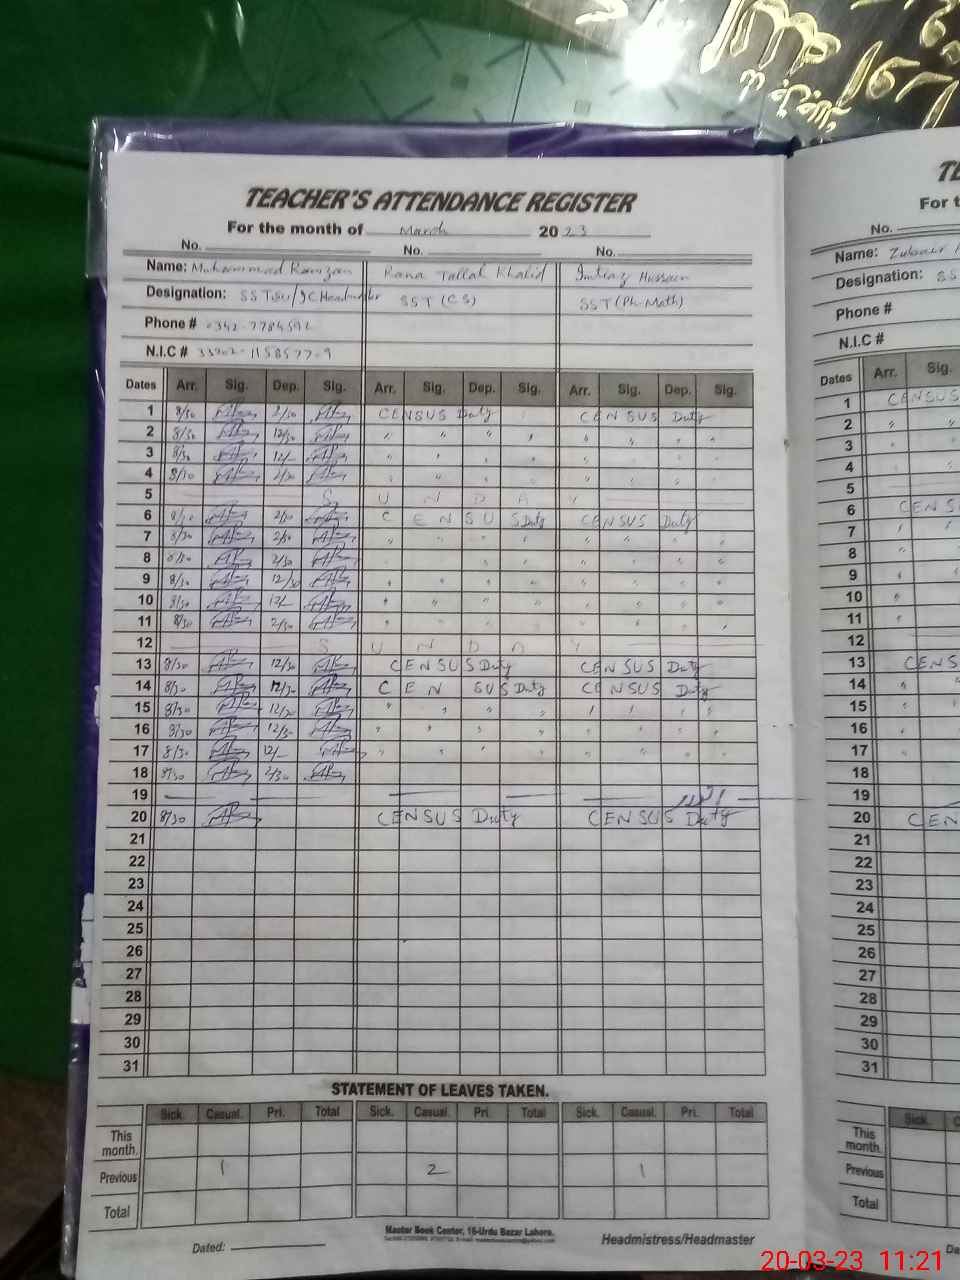 TEACHER'S ATTENDANCE REGISTER
For the month of March 2023
No. No. No.
Name: Muhammad Ramzan Rana Tallal Khalid Imtiaz Hussain
Designation: SST(CS) SST (Ph-Math)
Phone #
N.I.C #
Dates Arr. Sig. Dep. Sig. Arr. Sig. Dep. Sig. Arr. Sig. Dep. Sig.
1 8/30 2/30 CENSUS Duty CENSUS Duty
2 8/30 12/30 " " " " " " " "
3 8/30 12/- " " " " " " " "
4 8/30 2/30 " " " " " " " "
5 S U N D A Y
6 8/30 2/30 CENSUS Duty CENSUS Duty
7 8/30 2/30 " " " " " " " "
8 8/30 2/30 " " " " " "
9 8/30 12/30 " " " " " " " "
10 8/30 12/- " " " " " " " "
11 8/30 2/30 " " " " " " " "
12 S U N D A Y
13 8/30 12/30 CENSUS Duty CENSUS Duty
14 8/30 12/30 CENSUS Duty CENSUS Duty
15 8/30 12/30 " " " " " " " "
16 8/30 12/30 " " " " " " " "
17 8/30 12/- " " " " " " " "
18 8/30 2/30
19 اتوار
20 8/30 CENSUS Duty CENSUS Duty
21
22
23
24
25
26
27
28
29
30
31
STATEMENT OF LEAVES TAKEN.
Sick. Casual. Pri. Total Sick. Casual. Pri. Total Sick. Casual. Pri. Total
This
month.
Previous 1 2 1
Total
Master Book Center, 16-Urdu Bazar Lahore.
Dated: Headmistress/Headmaster
TE
For t
No.
Name: Zubair
Designation: SS
Phone #
N.I.C #
Dates Arr. Sig.
1 CENSUS
2 " "
3 "
4 "
5
6 CENS
7 " "
8 "
9 "
10 "
11 "
12
13 CENS
14 "
15 "
16 "
17 "
18
19
20 CEN
21
22
23
24
25
26
27
28
29
30
31
Sick. C
This
month.
Previous
Total
Da
20-03-23 11:21